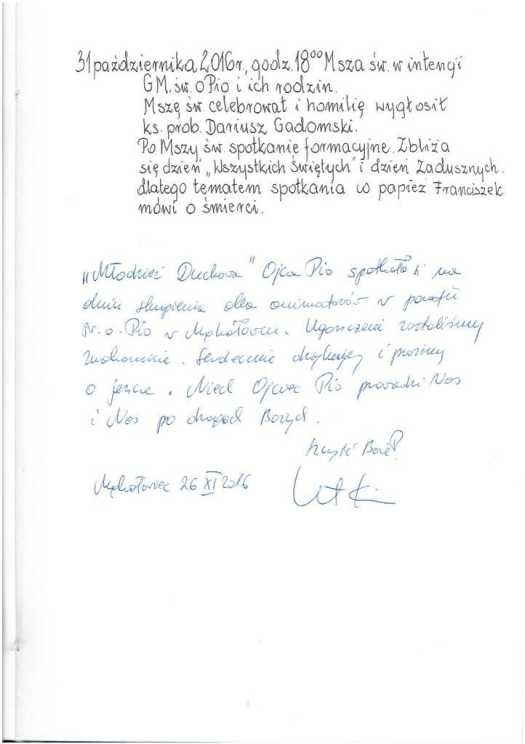 31 października 2016r, godz. 18⁰⁰ Msza św. w intencji
GM. św. o Pio i ich rodzin.
Mszę św celebrował i homilię wygłosił
ks. prob. Dariusz Gadomski.
Po Mszy św. spotkanie formacyjne. Zbliża
się dzień „Wszystkich Świętych" i dzień Zadusznych.
dlatego tematem spotkania co papież Franciszek
mówi o śmierci.
„Młodzież Duchowa" Ojca Pio spotkała się na
dniu skupienia dla animatorów w parafii
św. o. Pio w. Ugoszczeni zostaliśmy
znakomicie. Serdecznie dziękuję i prosimy
o jeszcze. Niech Ojciec Pio prowadzi Nas
i Nas po drogach Bożych.
Szczęść Boże!
26 XI 2016